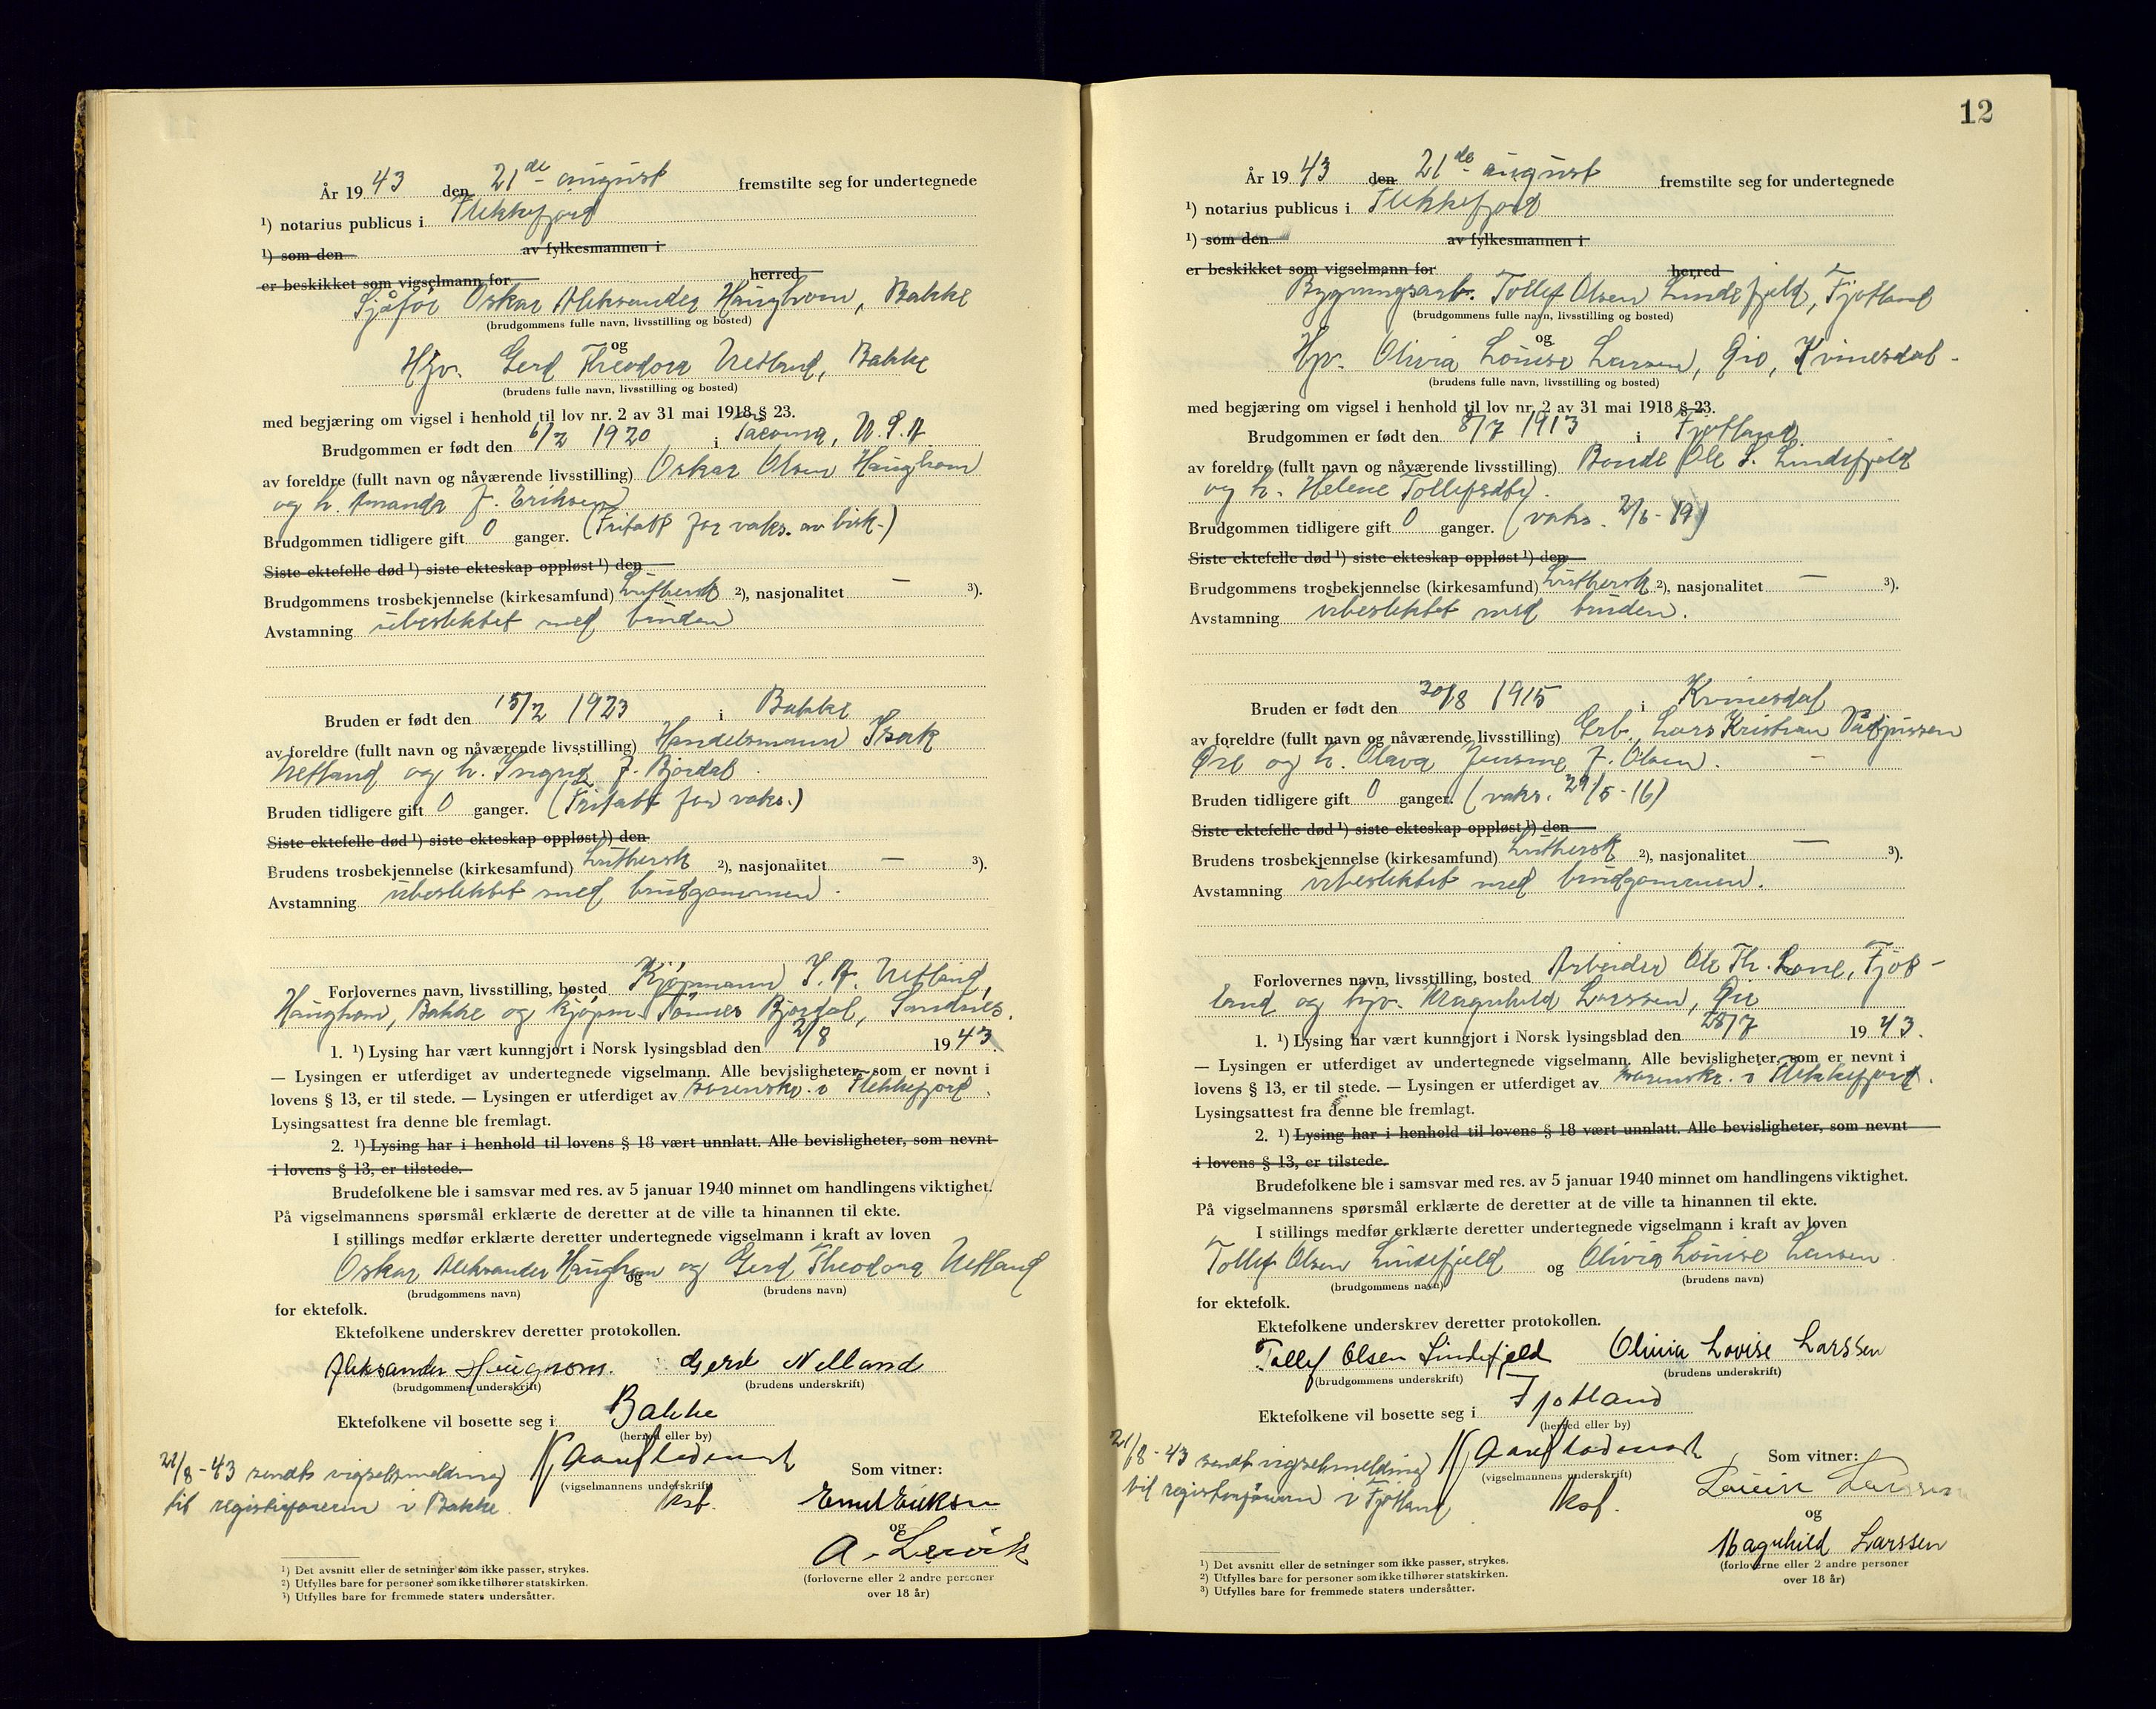 År 1943 den 21de august fremstilte seg for undertegnede
¹) notarius publicus i Flekkefjord
¹) som den av fylkesmannen i
er beskikket som vigselmann for herred
Sjåfør Oskar Aleksander Haughom, Bakke
(brudgommens fulle navn, livsstilling og bosted)
og
Hjv. Gerd Theodora Netland, Bakke
(brudens fulle navn, livsstilling og bosted)
med begjæring om vigsel i henhold til lov nr. 2 av 31 mai 1918 § 23.
Brudgommen er født den 6/2 1920 i Tacoma, U.S.A.
av foreldre (fullt navn og nåværende livsstilling) Oskar Olsen Haughom
og h. Amanda f. Eriksen
Brudgommen tidligere gift 0 ganger. (Fritatt for vaks. av bisk.)
Siste ektefelle død ¹) siste ekteskap oppløst ¹) den
Brudgommens trosbekjennelse (kirkesamfund) Luthersk ²), nasjonalitet — ³).
Avstamning ubeslektet med bruden
Bruden er født den 15/2 1923 i Bakke
av foreldre (fullt navn og nåværende livsstilling) Handelsmann Isak
Netland og h. Ingrid f. Bjordal.
Bruden tidligere gift 0 ganger. (Fritatt for vaks.)
Siste ektefelle død ¹) siste ekteskap oppløst ¹) den
Brudens trosbekjennelse (kirkesamfund) Luthersk ²), nasjonalitet — ³).
Avstamning ubeslektet med brudgommen.
Forlovernes navn, livsstilling, bosted Kjøpmann I. A. Netland,
Haughom, Bakke og kjøpm. Tønnes Bjordal, Sandnes.
1. ¹) Lysing har vært kunngjort i Norsk lysingsblad den 2/8 1943.
— Lysingen er utferdiget av undertegnede vigselmann. Alle bevisligheter, som er nevnt i
lovens § 13, er til stede. — Lysingen er utferdiget av sorenskr. i Flekkefjord.
Lysingsattest fra denne ble fremlagt.
2. ¹) Lysing har i henhold til lovens § 18 vært unnlatt. Alle bevisligheter, som nevnt
i lovens § 13, er tilstede.
Brudefolkene ble i samsvar med res. av 5 januar 1940 minnet om handlingens viktighet.
På vigselmannens spørsmål erklærte de deretter at de ville ta hinannen til ekte.
I stillings medfør erklærte deretter undertegnede vigselmann i kraft av loven
Oskar Aleksander Haughom og Gerd Theodora Netland
og
(brudgommens navn) (brudens navn)
for ektefolk.
Ektefolkene underskrev deretter protokollen.
Aleksander Haughom. Gerd Netland
(brudgommens underskrift) (brudens underskrift)
Ektefolkene vil bosette seg i Bakke
(herred eller by)
21/8-43 sendt vigselsmelding
til registerføreren i Bakke.
(vigselmannens underskrift)
kst.
Som vitner:
Emil Eriksen
og
A. Lervik
(forloverne eller 2 andre personer
over 18 år)
¹) Det avsnitt eller de setninger som ikke passer, strykes.
²) Utfylles bare for personer som ikke tilhører statskirken.
³) Utfylles bare for fremmede staters undersåtter.
12
År 1943 den 21de august fremstilte seg for undertegnede
¹) notarius publicus i Flekkefjord
¹) som den av fylkesmannen i
er beskikket som vigselmann for herred
Bygningsarb. Tollef Olsen Lindefjeld, Fjotland
(brudgommens fulle navn, livsstilling og bosted)
og
Hjv. Olivia Louise Larsen, Øie, Kvinesdal.
(brudens fulle navn, livsstilling og bosted)
med begjæring om vigsel i henhold til lov nr. 2 av 31 mai 1918 § 23.
Brudgommen er født den 8/7 1913 i Fjotland
av foreldre (fullt navn og nåværende livsstilling) Bonde Ole S. Lindefjeld
og h. Helene Tollefsdtr.
Brudgommen tidligere gift 0 ganger. (vaks. 2/6-19)
Siste ektefelle død ¹) siste ekteskap oppløst ¹) den
Brudgommens trosbekjennelse (kirkesamfund) Luthersk ²), nasjonalitet — ³).
Avstamning ubeslektet med bruden.
Bruden er født den 30/8 1915 i Kvinesdal
av foreldre (fullt navn og nåværende livsstilling) Arb. Lars Kristian
Øie og h. Olava Jensine f. Olsen.
Bruden tidligere gift 0 ganger. (vaks. 29/5-16)
Siste ektefelle død ¹) siste ekteskap oppløst ¹) den
Brudens trosbekjennelse (kirkesamfund) Luthersk ²), nasjonalitet — ³).
Avstamning ubeslektet med brudgommen.
Forlovernes navn, livsstilling, bosted Arbeider Ole Th. Lone, Fjot-
land og hjv. Magnhild Larssen, Øie
1. ¹) Lysing har vært kunngjort i Norsk lysingsblad den 28/7 1943.
— Lysingen er utferdiget av undertegnede vigselmann. Alle bevisligheter, som er nevnt i
lovens § 13, er til stede. — Lysingen er utferdiget av sorenskr. i Flekkefjord.
Lysingsattest fra denne ble fremlagt.
2. ¹) Lysing har i henhold til lovens § 18 vært unnlatt. Alle bevisligheter, som nevnt
i lovens § 13, er tilstede.
Brudefolkene ble i samsvar med res. av 5 januar 1940 minnet om handlingens viktighet.
På vigselmannens spørsmål erklærte de deretter at de ville ta hinannen til ekte.
I stillings medfør erklærte deretter undertegnede vigselmann i kraft av loven
Tollef Olsen Lindefjeld og Olivia Louise Larsen.
(brudgommens navn) (brudens navn)
for ektefolk.
Ektefolkene underskrev deretter protokollen.
Tollef Olsen Lindefjeld Olivia Lovise Larssen
(brudgommens underskrift) (brudens underskrift)
Ektefolkene vil bosette seg i Fjotland
(herred eller by)
21/8-43 sendt vigselmelding
til registerføreren i Fjotland
(vigselmannens underskrift)
kst.
Som vitner:
Larssen
og
Magnhild Larssen
(forloverne eller 2 andre personer
over 18 år)
¹) Det avsnitt eller de setninger som ikke passer, strykes.
²) Utfylles bare for personer som ikke tilhører statskirken.
³) Utfylles bare for fremmede staters undersåtter.